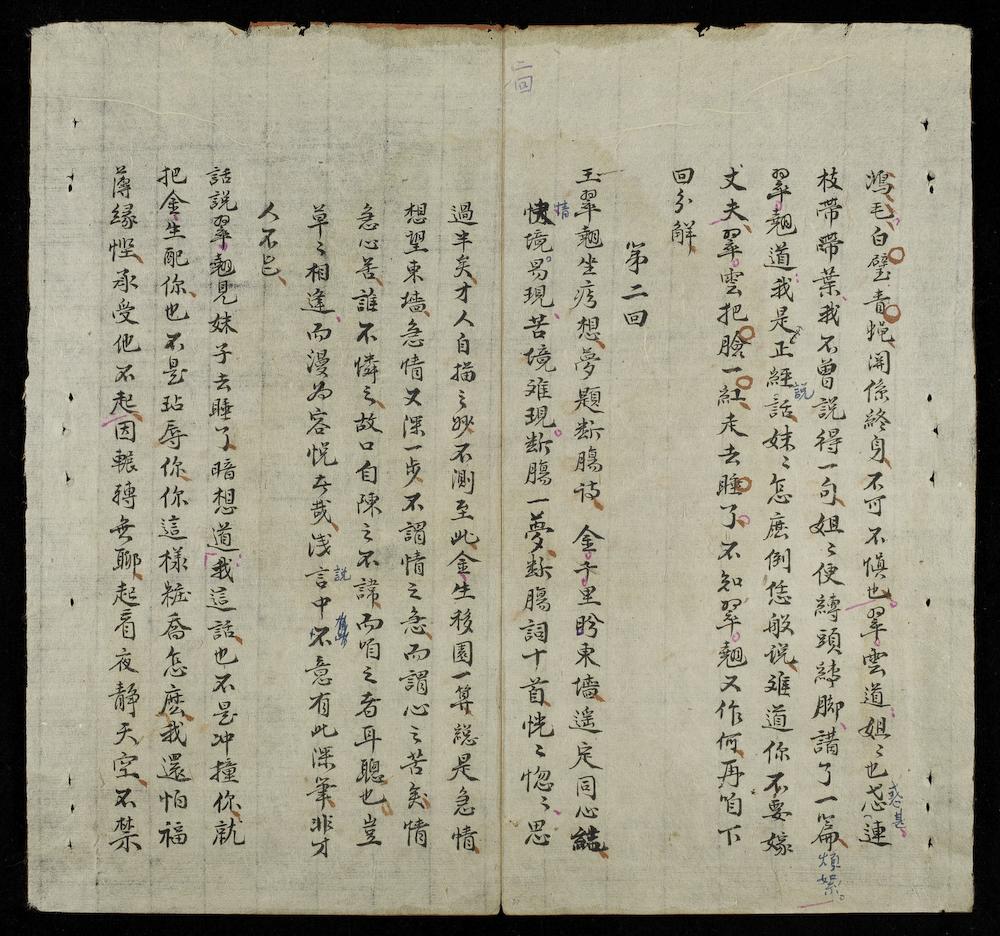 二回
鴻毛白璧青蝇関係終身不可不慎也翠雲道姐〻也忒連
忒甚
枝帶帶葉我不曽説得一句姐〻便縛頭縛脚講了一篇
煩絮
翠翹道我是正經話妹〻怎庶倒恁般说难道你不要嫁
説
丈夫翠雲把臉一紅走去睡了不知翠翹又作何再咱下
回分解
第二回
王翠翹坐痴想夢題断膓诗 金千里盻東墙遥定同心結
情境昜現苦境难現断膓一夢断膓詞十首恍〻惚〻思
情
過半矣才人自描之妙不測至此金生移園一算総是急情
想望東墙急情又深一步不謂情之急而謂心之苦矣情
急心苦誰不憐之故口自陳之不諱而咱之者耳聰也豈
草〻相逢而漫為容悦者哉浅言中不意有此深筆非才
説
人不㠯
話説翠翹見妹子去睡了暗想道我這話也不是冲撞你就
把金生配你也不是玷辱你你這樣粧喬怎麽我還怕福
薄縁慳承受他不起因輾轉無聊起看夜静天空不禁